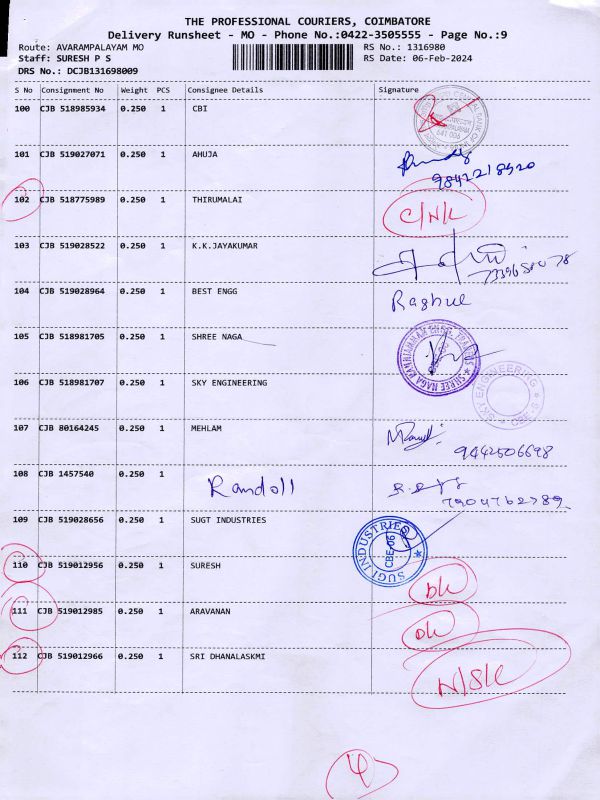 THE PROFESSIONAL COURIERS, COIMBATORE
Delivery Runsheet - MO - Phone No.:0422-3505555 - Page No.:9
Route: AVARAMPALAYAM MO RS No.: 1316980
Staff: SURESH P S RS Date: 06-Feb-2024
DRS No.: DCJB131698009
S No Consignment No Weight PCS Consignee Details Signature
100 CJB 518985934 0.250 1 CBI
641 006
101 CJB 519027071 0.250 1 AHUJA
9842218920
102 CJB 518775989 0.250 1 THIRUMALAI C/N/L
103 CJB 519028522 0.250 1 K.K.JAYAKUMAR
104 CJB 519028964 0.250 1 BEST ENGG Raghul
105 CJB 518981705 0.250 1 SHREE NAGA
SHREE NAGA
106 CJB 518981707 0.250 1 SKY ENGINEERING SKY ENGINEERING CBE
107 CJB 80164245 0.250 1 MEHLAM
9442506698
108 CJB 1457540 0.250 1 Randoll
7904762789
109 CJB 519028656 0.250 1 SUGT INDUSTRIES
SUGI INDUSTRIES CBE-06
110 CJB 519012956 0.250 1 SURESH
111 CJB 519012985 0.250 1 ARAVANAN
112 CJB 519012966 0.250 1 SRI DHANALASKMI
4